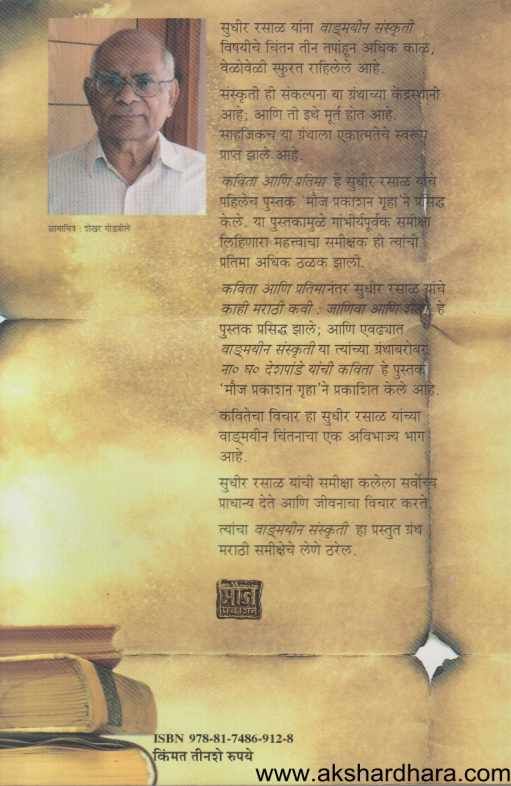 सुधीर रसाळ यांना वाङ्‌मयीन संस्कृती
विषयीचे चिंतन तीन तपांहून अधिक काळ,
वेळोवेळी स्फुरत राहिलेले आहे.
संस्कृती ही संकल्पना या ग्रंथाच्या केंद्रस्थानी
आहे; आणि ती इथे मूर्त होत आहे.
साहजिकच या ग्रंथाला एकात्मतेचे स्वरूप
प्राप्त झाले आहे.
कविता आणि प्रतिमा हे सुधीर रसाळ यांचे
पहिलेच पुस्तक 'मौज प्रकाशन गृहा'ने प्रसिद्ध
केले. या पुस्तकामुळे गांभीर्यपूर्वक समीक्षा
लिहिणारा महत्त्वाचा समीक्षक ही त्यांची
प्रतिमा अधिक ठळक झाली.
छायाचित्र : शेखर गोडबोले
कविता आणि प्रतिमानंतर सुधीर रसाळ यांचे
काही मराठी कवी : जाणिवा आणि शैली हे
पुस्तक प्रसिद्ध झाले; आणि एवढ्यात
वाङ्‌मयीन संस्कृती या त्यांच्या ग्रंथाबरोबर
ना० घ० देशपांडे यांची कविता हे पुस्तक
'मौज प्रकाशन गृहा'ने प्रकाशित केले आहे.
कवितेचा विचार हा सुधीर रसाळ यांच्या
वाङ्‌मयीन चिंतनाचा एक अविभाज्य भाग
आहे.
सुधीर रसाळ यांची समीक्षा कलेला सर्वोच्च
प्राधान्य देते आणि जीवनाचा विचार करते.
त्यांचा वाङ्‌मयीन संस्कृती हा प्रस्तुत ग्रंथ
मराठी समीक्षेचे लेणे ठरेल.
मौज
प्रकाशन
ISBN 978-81-7486-912-8
किंमत तीनशे रुपये
www.akshardhara.com